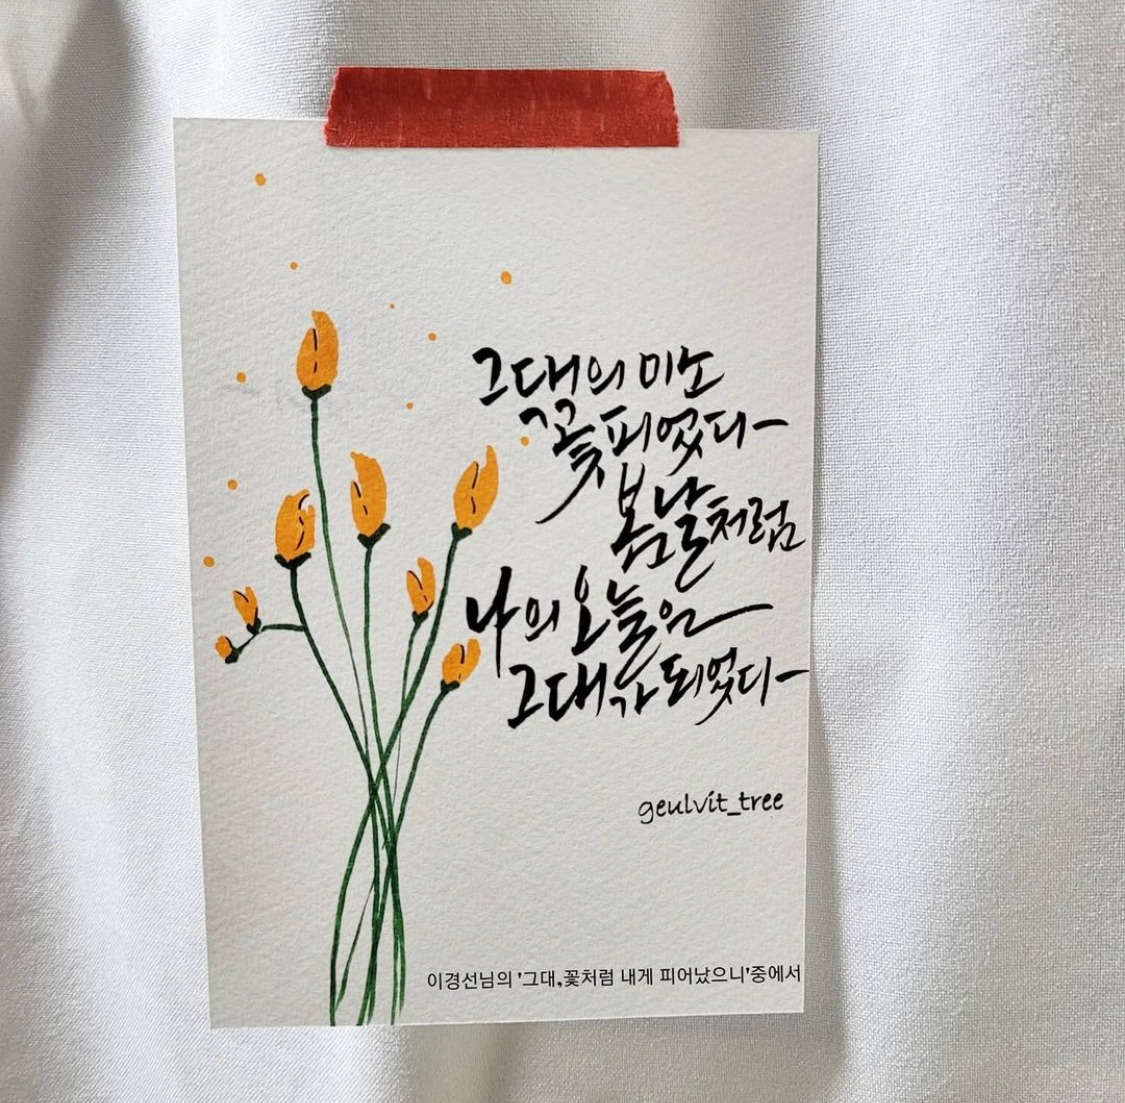 그대의 미소
꽃피었다
봄날처럼
나의 오늘은
그대가 되었다
geulvit_tree
이경선님의 '그대,꽃처럼 내게 피어났으니'중에서